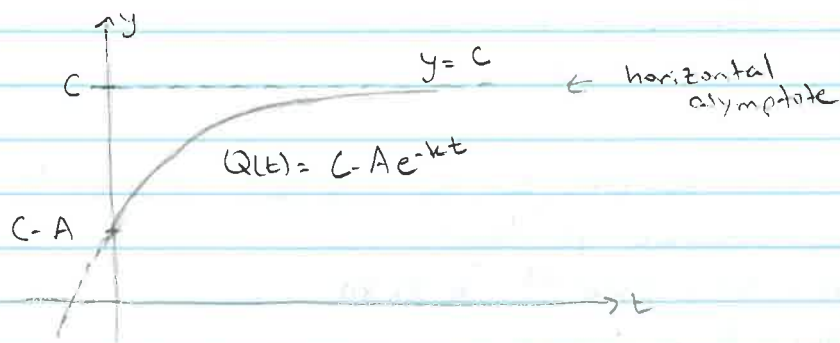 y
C
y = C
← horizontal
asymptote
Q(t) = C - A e^-kt
C - A
t